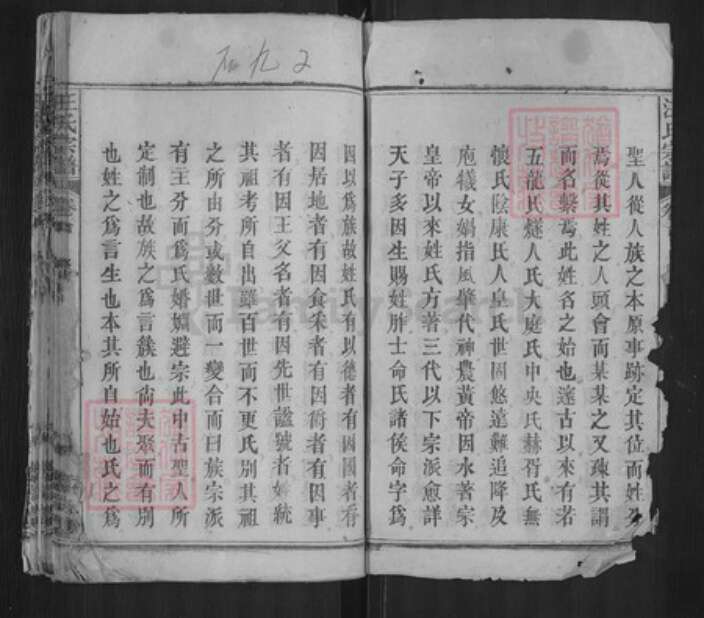 聖人從人族之本原事跡定其位而姓
焉從其姓之人頭會而某某之又疎其謂
而名繫焉此姓名之始也遠古以來有若
五龍氏燧人氏大庭氏中央氏赫胥氏無
懷氏陰康氏人皇氏世固悠遠難追降及
庖犧女媧指風華代神農黃帝因水著宗
皇帝以來姓氏方著三代以下宗派愈詳
天子多因生賜姓胙士命氏諸侯命字爲
因以爲族故姓氏有以德者有因國者有
因居地者有因食采者有因衛者有因事
者有因王父名者有因先世謚號者如統
其祖考所自出雖百世而不更氏別其祖
之所由分或數世而一變合而曰族宗派
有主分而爲氏婚姻避宗此中古聖人所
定制也故族之爲言簇也尚夫聚而有別
也姓之爲言生也本其所自始也氏之爲
汪氏宗譜
汪氏宗譜
石九2
FamilySearch